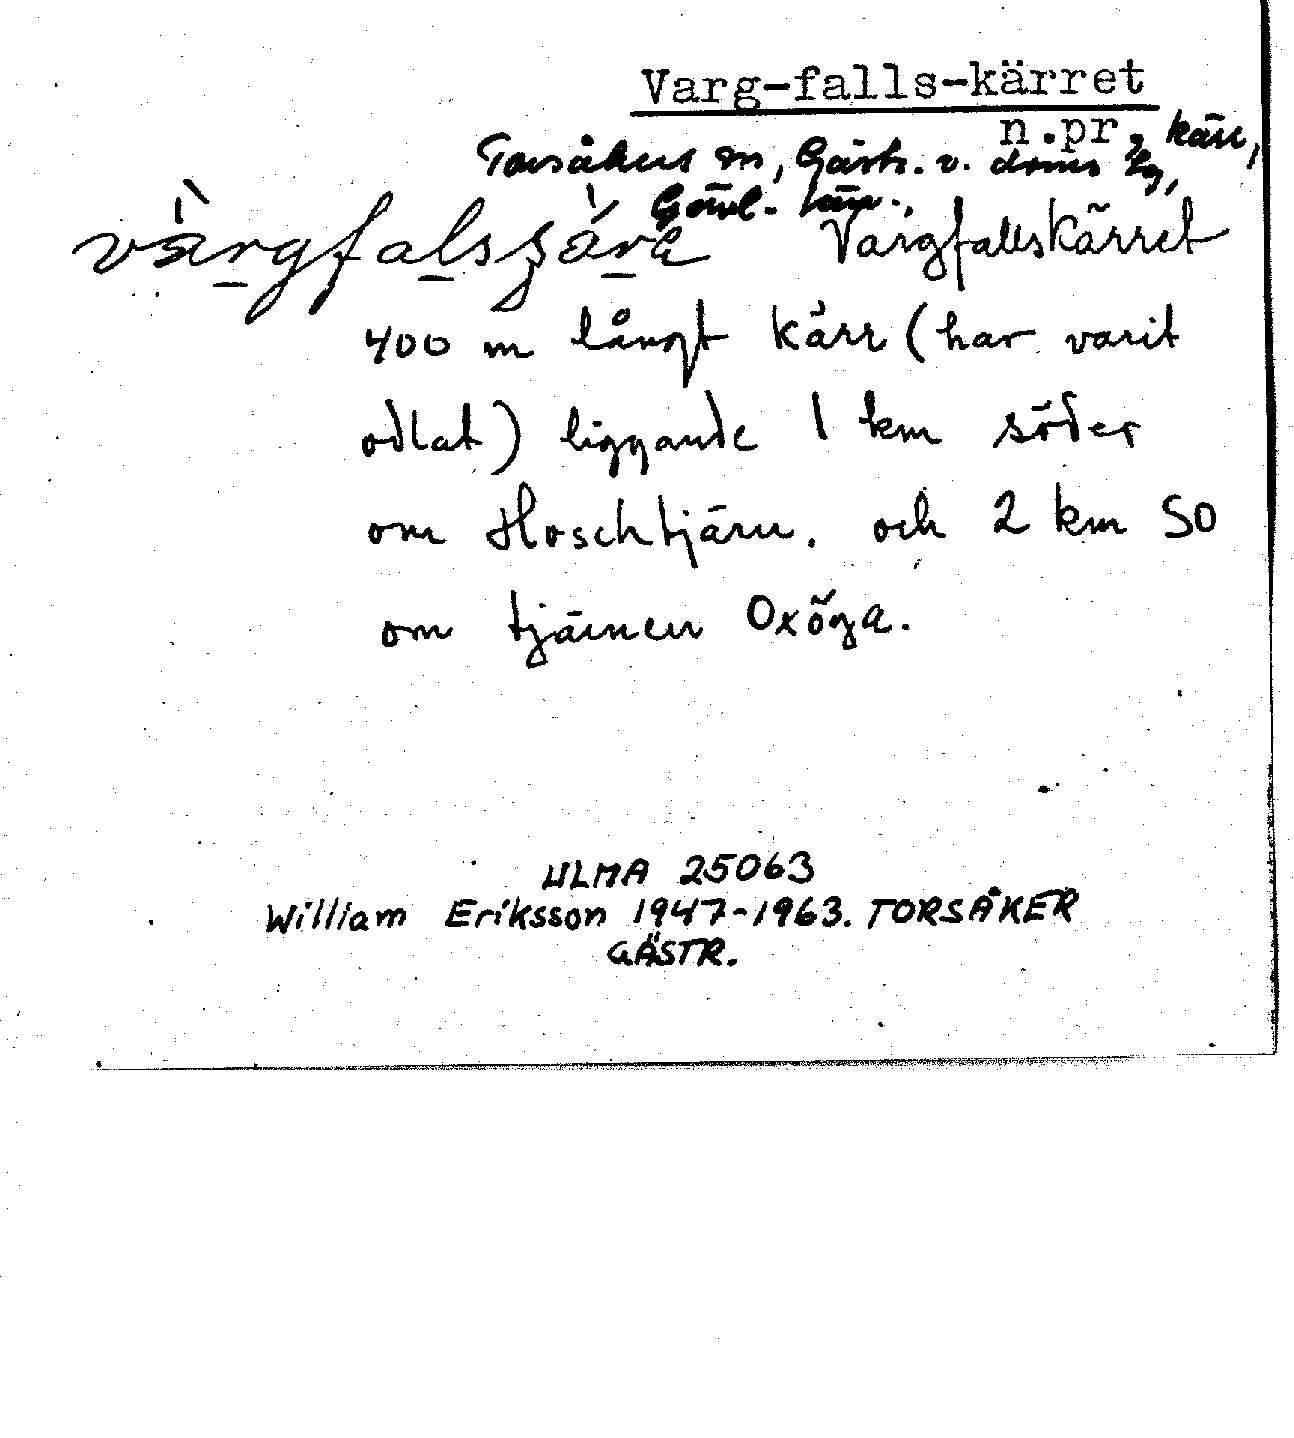 Varg-falls-kärret
n.pr, kärr,
Torsåkers sn, Gästr. v. doms lg,
Gävl. län.,
Vargfallskärret
400 m långt kärr (har varit
odlat) liggande 1 km söder
om Hoschtjärn. och 2 km SO
om tjärnen Oxöga.
ULMA 25063
William Eriksson 1947-1963. TORSÅKER
GÄSTR.